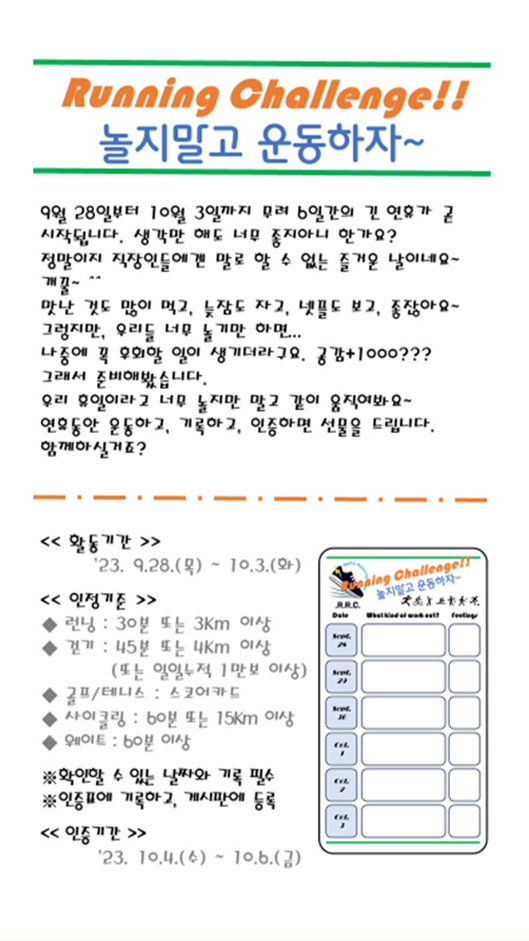 Running Challenge!!
놀지말고 운동하자~
9월 28일부터 10월 3일까지 무려 6일간의 긴 연휴가 곧
시작됩니다. 생각만 해도 너무 좋지아니 한가요?
정말이지 직장인들에겐 말로 할 수 없는 즐거운 날이네요~
개꿀~ ^^
맛난 것도 많이 먹고, 늦잠도 자고, 넷플도 보고, 좋잖아요~
그렇지만, 우리들 너무 놀기만 하면...
나중에 꼭 후회할 일이 생기더라구요. 공감+1000???
그래서 준비해봤습니다.
우리 휴일이라고 너무 놀지만 말고 같이 움직여봐요~
연휴동안 운동하고, 기록하고, 인증하면 선물을 드립니다.
함께하실거죠?
<< 활동기간 >>
'23. 9.28.(목) ~ 10.3.(화)
<< 인정기준 >>
◆ 런닝 : 30분 또는 3Km 이상
◆ 걷기 : 45분 또는 4Km 이상
(또는 일일누적 1만보 이상)
◆ 골프/테니스 : 스코어카드
◆ 사이클링 : 60분 또는 15Km 이상
◆ 웨이트 : 60분 이상
※확인할 수 있는 날짜와 기록 필수
※인증표에 기록하고, 게시판에 등록
<< 인증기간 >>
'23. 10.4.(수) ~ 10.6.(금)
Running Challenge!!
놀지말고 운동하자~
R.R.C.
Date What kind of work out? Feelings
Sept. 28
Sept. 29
Sept. 30
Oct. 1
Oct. 2
Oct. 3